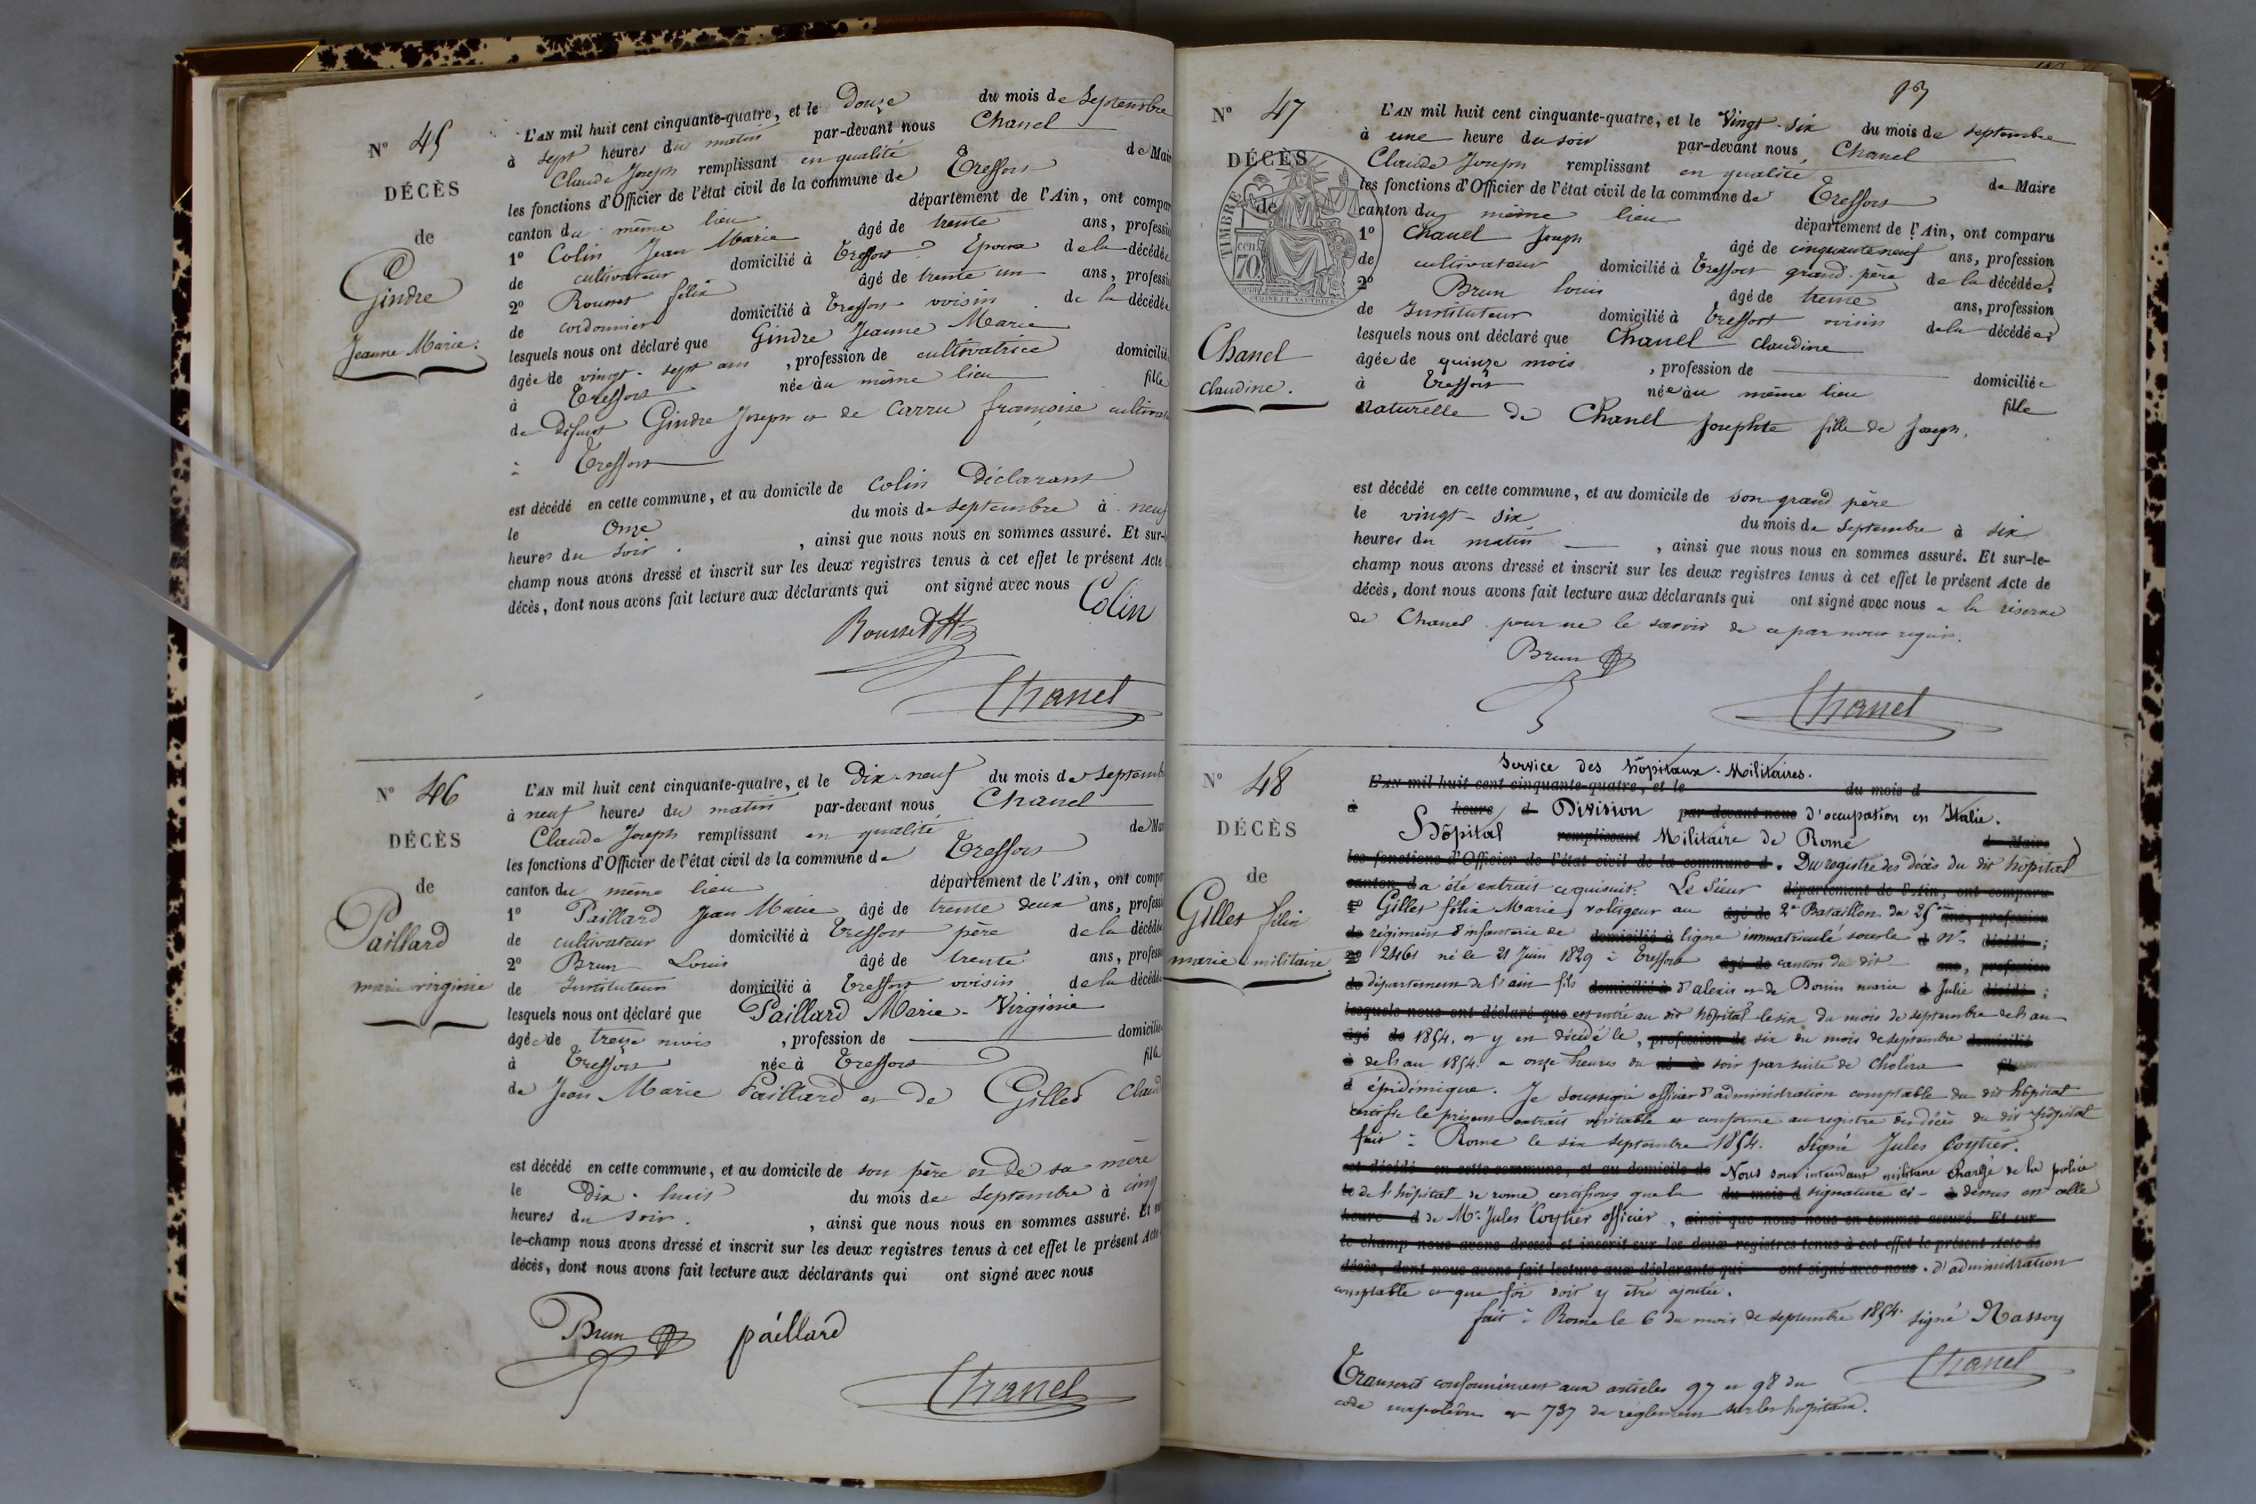 N° 45
DÉCÈS
de
Gindre
Jeanne Marie.
L'AN mil huit cent cinquante-quatre, et le Douze du mois de Septembre
à sept heures du matin par-devant nous Chanel
Claude Joseph remplissant en qualité de Mair
les fonctions d'Officier de l'état civil de la commune de Treffort
canton du même lieu département de l'Ain, ont compar
1° Colin Jean Marie âgé de trente ans, professio
de cultivateur domicilié à Treffort Epoux de la décédée
2° Rousset félix âgé de trente un ans, professio
de cordonnier domicilié à Treffort voisin de la décédée
lesquels nous ont déclaré que Gindre Jeanne Marie
âgée de vingt-sept ans, profession de cultivatrice domiciliée
à Treffort née au même lieu fille
de Défunt Gindre Joseph et de Carru françoise
à Treffort
est décédé en cette commune, et au domicile de Colin Déclarant
le Onze du mois de septembre à neuf
heures du soir. , ainsi que nous nous en sommes assuré. Et sur-
champ nous avons dressé et inscrit sur les deux registres tenus à cet effet le présent Acte
décès, dont nous avons fait lecture aux déclarants qui ont signé avec nous
Colin
Rousset
Chanel
N° 46
DÉCÈS
de
Paillard
marie virginie
L'AN mil huit cent cinquante-quatre, et le Dix-neuf du mois de Septemb
à neuf heures du matin par-devant nous Chanel
Claude Joseph remplissant en qualité de Mai
les fonctions d'Officier de l'état civil de la commune de Treffort
canton du même lieu département de l'Ain, ont compa
1° Paillard Jean Marie âgé de trente deux ans, professi
de cultivateur domicilié à Treffort père de la décédée
2° Brun Louis âgé de trente ans, profess
de Instituteur domicilié à Treffort voisin de la décédée
lesquels nous ont déclaré que Paillard Marie-Virginie
âgée de treize mois, profession de domiciliée
à Treffort née à Treffort fille
de Jean Marie Paillard et de Gilled Claud
est décédé en cette commune, et au domicile de son père et de sa mère
le Dix-huit du mois de Septembre à cinq
heures du soir. , ainsi que nous nous en sommes assuré. Et su
le-champ nous avons dressé et inscrit sur les deux registres tenus à cet effet le présent Acte
décès, dont nous avons fait lecture aux déclarants qui ont signé avec nous
Brun paillard
Chanel
N° 47
DÉCÈS
de
TIMBRE
70
Chanel
Claudine.
L'AN mil huit cent cinquante-quatre, et le Vingt-six du mois de septembre
à une heure du soir par-devant nous Chanel
Claude Joseph remplissant en qualité de Maire
les fonctions d'Officier de l'état civil de la commune de Treffort
canton du même lieu département de l'Ain, ont comparu
1° Chanel Joseph âgé de cinquante neuf ans, profession
de cultivateur domicilié à Treffort grand-père de la décédée;
2° Brun louis âgé de trente ans, profession
de Instituteur domicilié à Treffort voisin de la décédée;
lesquels nous ont déclaré que Chanel claudine
âgée de quinze mois, profession de domiciliée
à Treffort née au même lieu fille
Naturelle de Chanel Josephte fille de Joseph.
est décédé en cette commune, et au domicile de son grand père
le vingt-six du mois de Septembre à six
heures du matin , ainsi que nous nous en sommes assuré. Et sur-le-
champ nous avons dressé et inscrit sur les deux registres tenus à cet effet le présent Acte de
décès, dont nous avons fait lecture aux déclarants qui ont signé avec nous a la réserve
de Chanel pour ne le savoir de ce par nous requis.
Brun
Chanel
N° 48
DÉCÈS
de
Gilles félix
marie militaire
Service des hôpitaux Militaires.
L'AN mil huit cent cinquante-quatre, et le du mois d
à heure d Division par-devant nous d'occupation en Italie.
Hôpital remplissant Militaire de Rome de Maire
les fonctions d'Officier de l'état civil de la commune d. Du registre des décès du dit hôpital
canton d a été extrait ce qui suit. Le Sieur département de l'Ain, ont comparu
1° Gilles félix Marie voltigeur au âgé de 2e Bataillon du 25e ans, profession
de régiment d'infanterie de domicilié à ligne immatriculé sous le d n° décédé;
2° 2461 né le 21 Juin 1829 à Treffort âgé de canton du dit ans, profession
de département de l'ain fils domicilié à d'alexis et de Bonin marie d Julie décédé;
lesquels nous ont déclaré que est entré au dit hôpital le six du mois de septembre de l'an
âgé de 1854. et y est décédé le, profession de six du mois de septembre domicilié
à de l'an 1854 a onze heures du né à soir par suite de choléra fils
d épidémique. Je soussigné officier d'administration comptable du dit hôpital
certifie le présent extrait véritable et conforme au registre des décès du dit hôpital
fait à Rome le six septembre 1854. Signé Jules Coytier.
est décédé en cette commune, et au domicile de Nous sous intendant militaire chargé de la police
le de l'hôpital de rome certifions que la du mois d signature ci- à dessus est celle
heure d de Mr. Jules Coytier officier, ainsi que nous nous en sommes assuré. Et sur-
le-champ nous avons dressé et inscrit sur les deux registres tenus à cet effet le présent Acte de
décès, dont nous avons fait lecture aux déclarants qui ont signé avec nous. d'administration
comptable et que foi doit y être ajoutée.
fait à Rome le 6 du mois de septembre 1854. signé
Chanel
Transcrit conformément aux articles 97 et 98 du
code napoléon et 737 du règlement sur les hôpitaux.